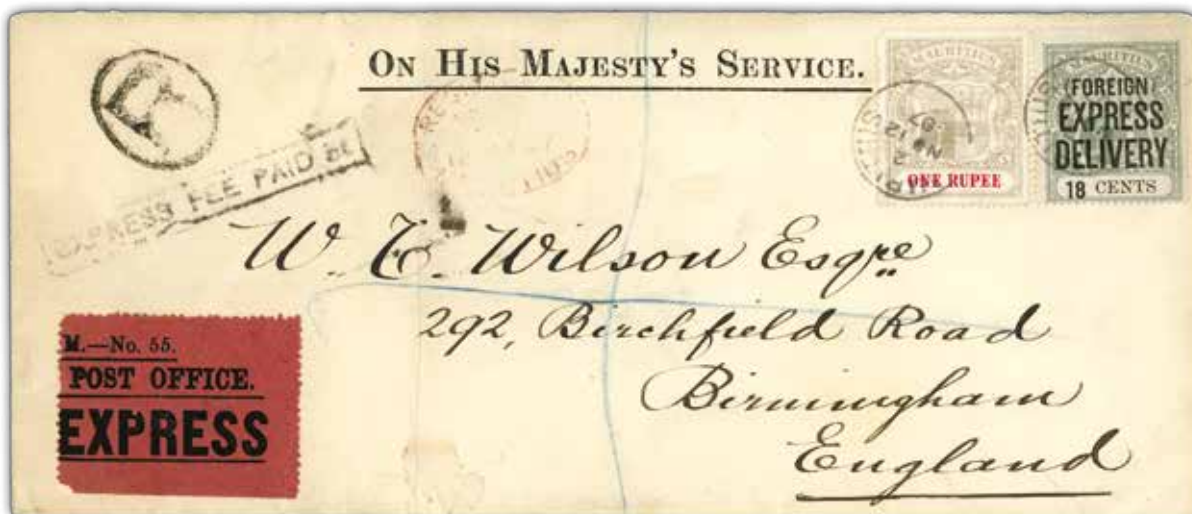 ON HIS MAJESTY'S SERVICE.
MAURITIUS
ONE RUPEE
MAURITIUS
(FOREIGN)
EXPRESS
DELIVERY
18 CENTS
R
EXPRESS FEE PAID
W. T. Wilson Esqre
292, Birchfield Road
Birmingham
England
M.—No. 55.
POST OFFICE.
EXPRESS